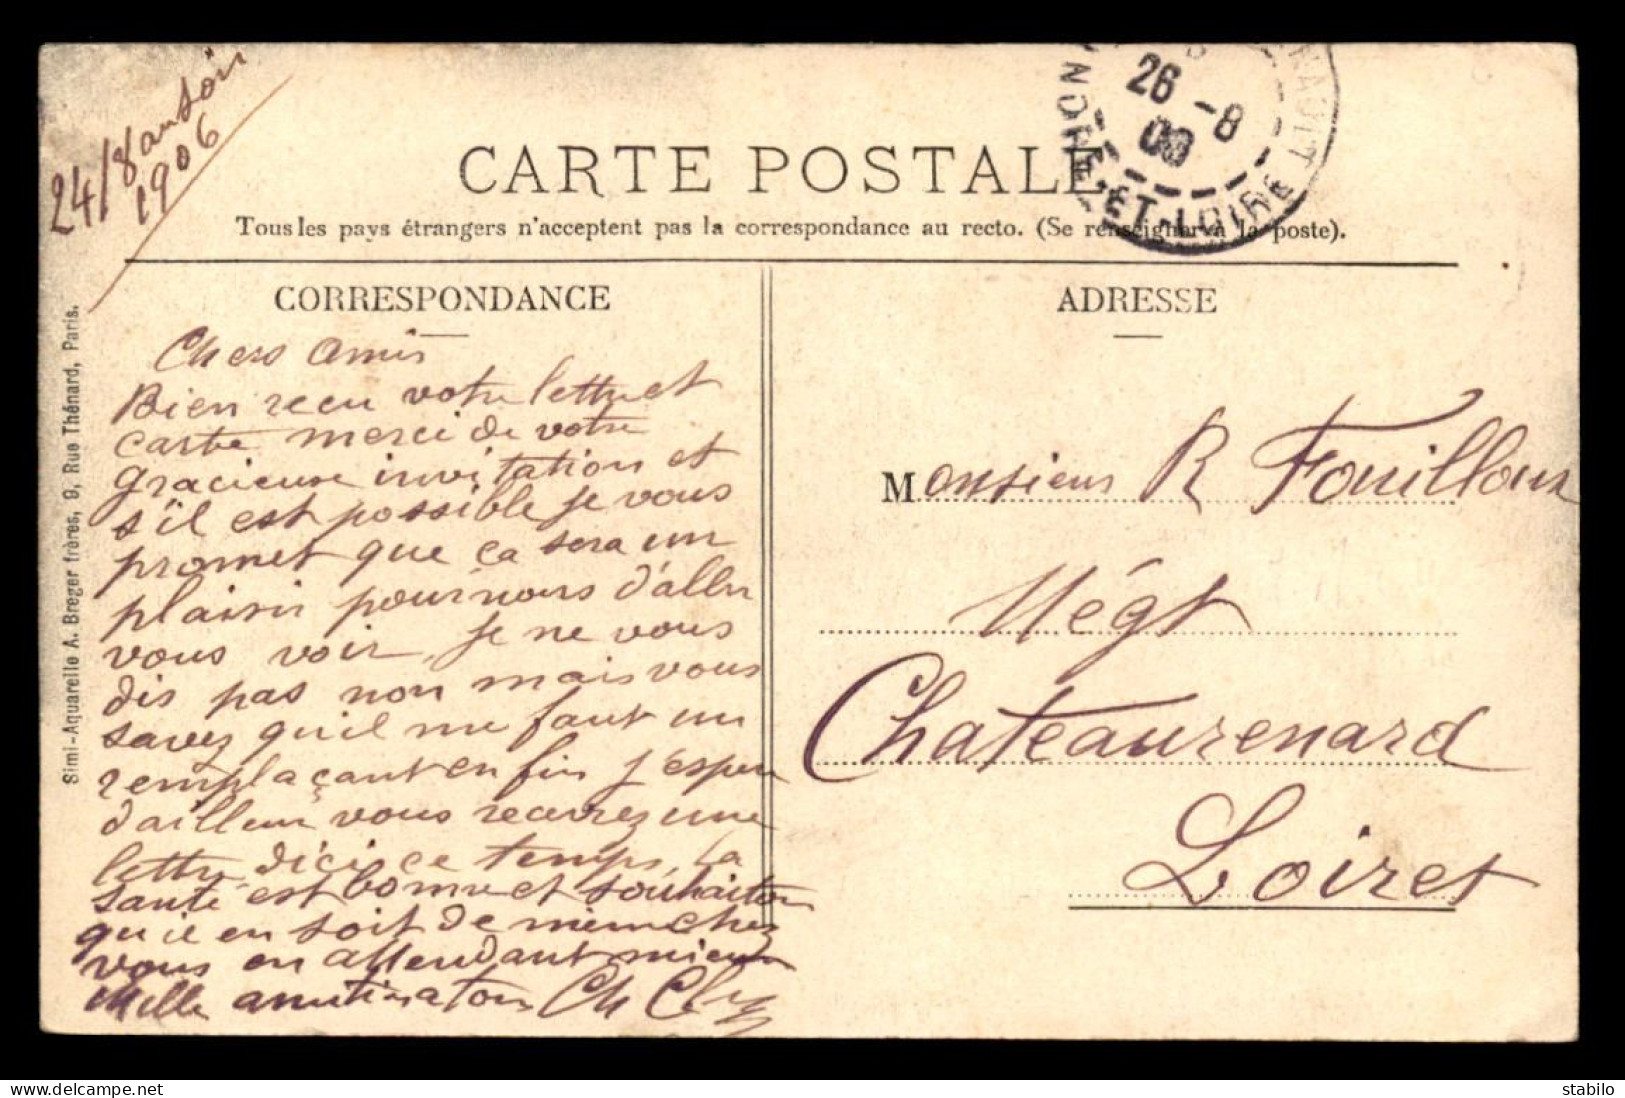 24/8 au soir
1906
26 -8
INDRE-ET-LOIRE
NAULT
CARTE POSTALE
Tous les pays étrangers n'acceptent pas la correspondance au recto. (Se renseigner à la poste).
CORRESPONDANCE
Chers Amis
Bien recu votre lettre et
carte merci de votre
gracieuse invitation et
s'il est possible je vous
promet que ça sera un
plaisir pour nous d'aller
vous voir, je ne vous
dis pas non mais vous
savez qu'il me faut un
remplaçant enfin j'espere
d'ailleur vous recevrez une
lettre d'ici ce temps, La
santé est bonne et souhaiton
qu'il en soit de meme chez
vous en attendant mieux
Mille Ch
ADRESSE
Monsieur R Fouilloux
Négt
Chateaurenard
Loiret
Simi-Aquarelle A. Breger frères, 9, Rue Thénard, Paris.
stabilo